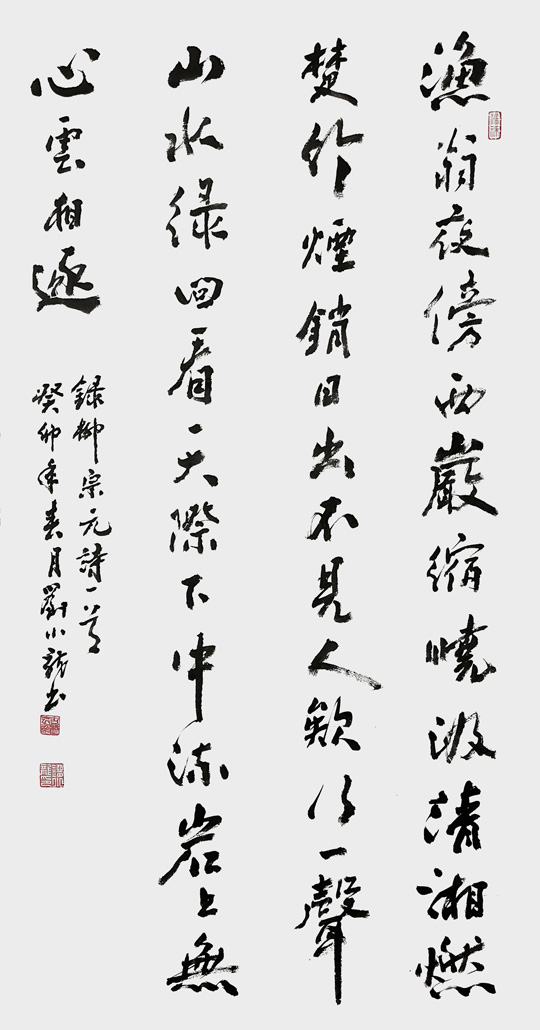 漁翁夜傍西巖縮曉汲清湘燃
楚竹煙銷日出不見人欸乃一聲
山水绿回看天際下中流岩上無
心雲相逐
録柳宗元詩一首
癸卯年春月劉小龍书